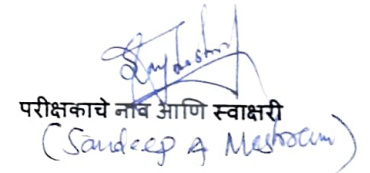 परीक्षकाचे नाव आणि स्वाक्षरी
(Sandeep A Meshram)